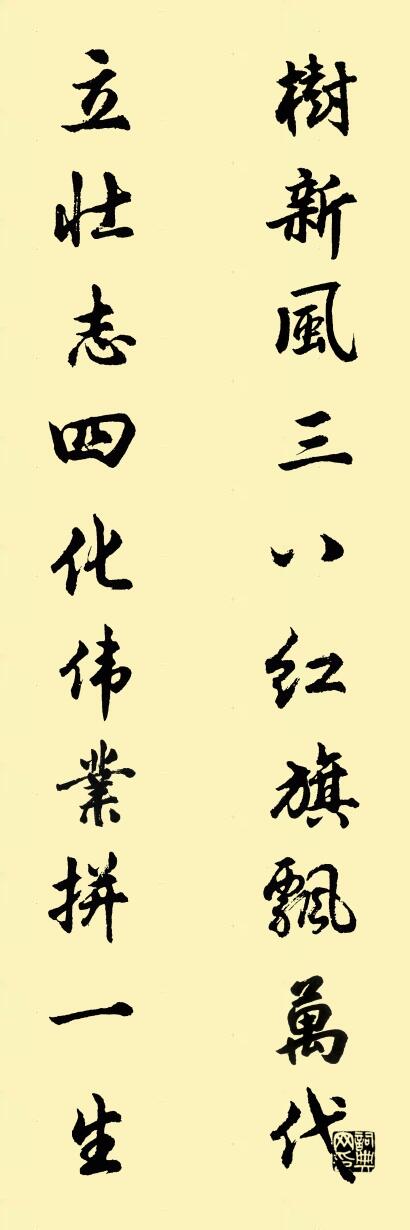 樹新風三八红旗飄萬代
立壯志四化伟業拼一生